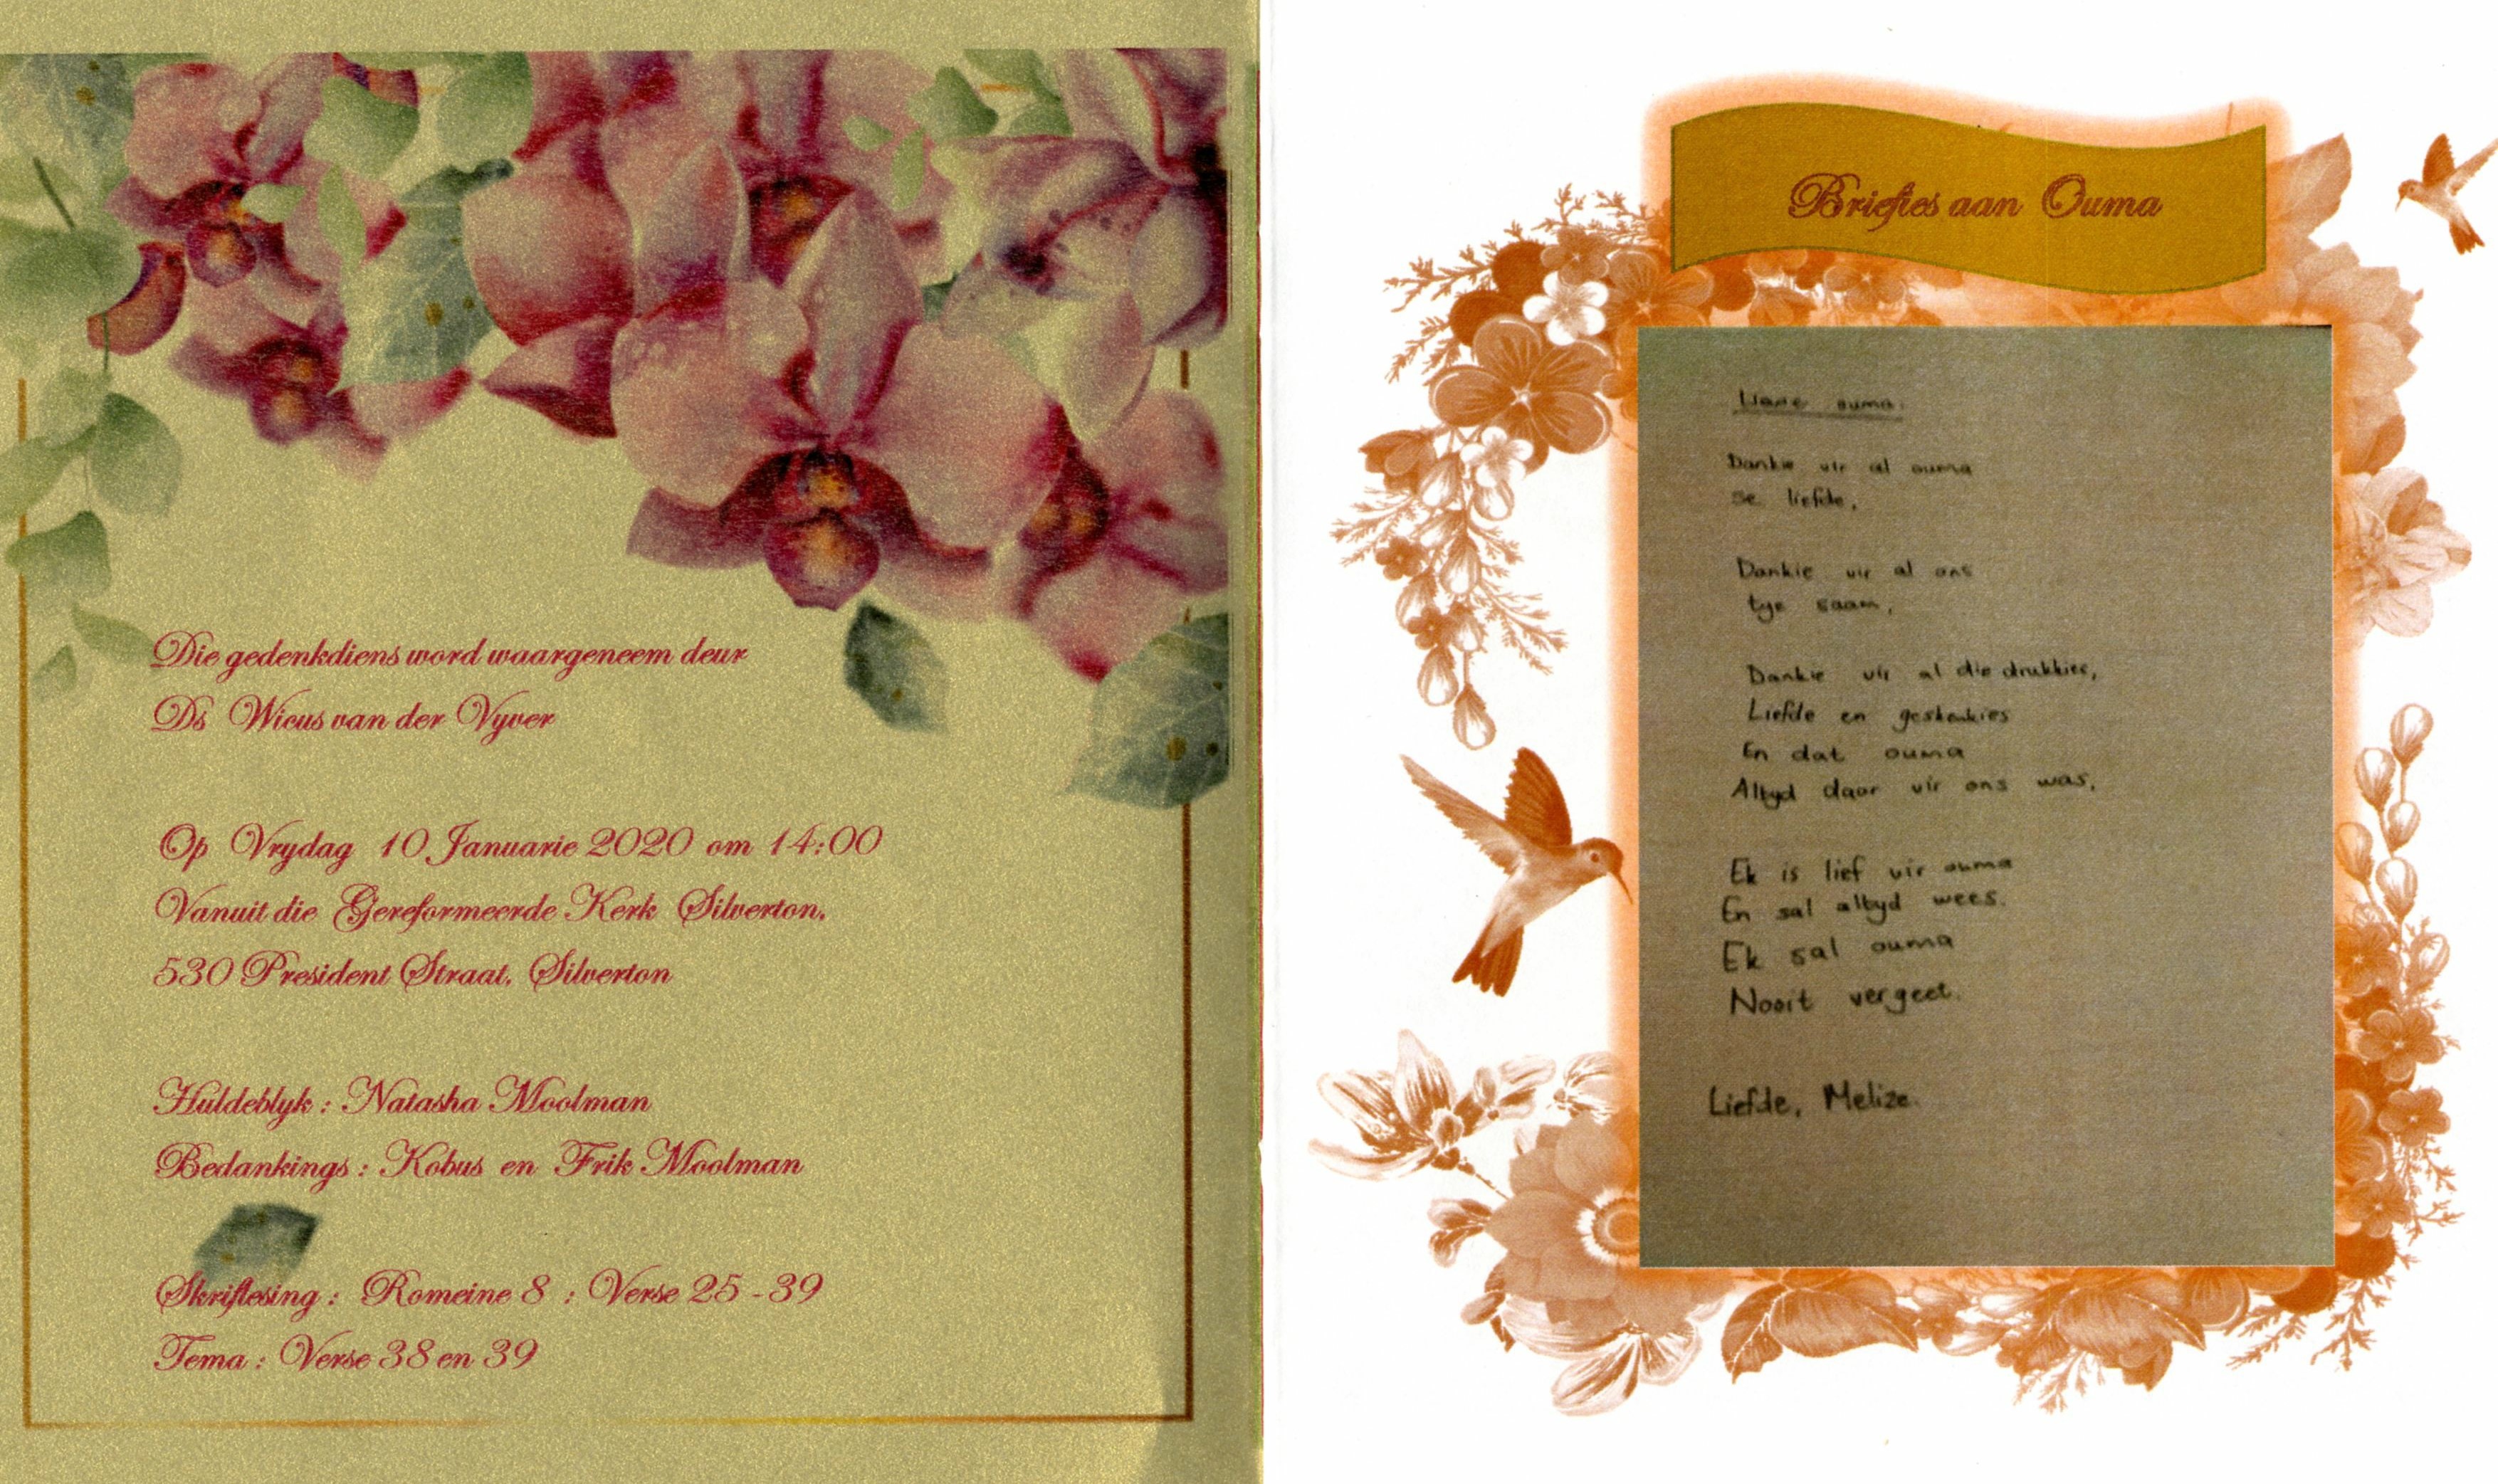 Die gedenkdiens word waargeneem deur
Ds Wicus van der Vyver
Op Vrydag 10 Januarie 2020 om 14:00
Vanuit die Gereformeerde Kerk Silverton.
530 President Straat, Silverton
Huldeblyk : Natasha Moolman
Bedankings : Kobus en Frik Moolman
Skriflesing : Romeine 8 : Verse 25 - 39
Tema : Verse 38 en 39
Briefies aan Ouma
Liewe ouma.
Dankie vir al ouma
se liefde,
Dankie vir al ons
tye saam,
Dankie vir al die drukkies,
Liefde en geskenkies
En dat ouma
Altyd daar vir ons was,
Ek is lief vir ouma
En sal altyd wees.
Ek sal ouma
Nooit vergeet.
Liefde, Melize.